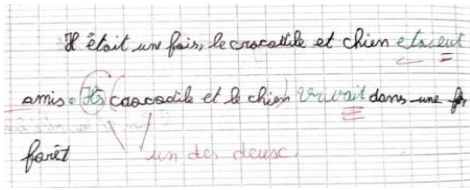 Il était une fois, le crocodile et chien étaient
amis. Ils crocodile et le chien vivait dans une for
forêt un des deux.